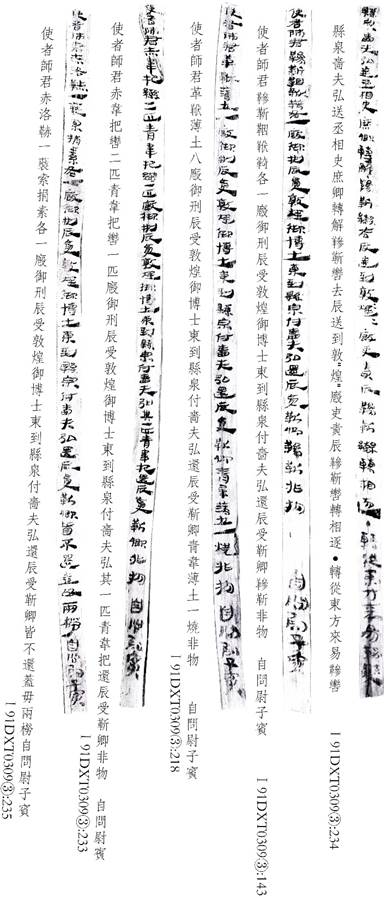 縣泉嗇夫弘送丞相史庶卿轉解鞮靳轡去辰送到敦=煌=廄吏責辰鞮靳轡轉相逐●轉從東方來易鞮轡
Ⅰ91DXT0309③:234
使者師君鞮靳鞇靯各一廄御刑辰受敦煌御博士東到縣泉付嗇夫弘還辰受靳卿鞮靳非物 自問尉子賓
Ⅰ91DXT0309③:143
使者師君革鞦薄土八廄御刑辰受敦煌御博士東到縣泉付嗇夫弘還辰受靳卿青韋薄土一燒非物 自問尉子賓
Ⅰ91DXT0309③:218
使者師君赤韋把轡二匹青韋把轡一匹廄御刑辰受敦煌御博士東到縣泉付嗇夫弘其一匹青韋把還辰受靳卿非物 自問尉賓
Ⅰ91DXT0309③:233
使者師君赤洛𩊚一裝索捐素各一廄御刑辰受敦煌御博士東到縣泉付嗇夫弘還辰受靳卿皆不還蓋毋兩橯自問尉子賓
Ⅰ91DXT0309③:235